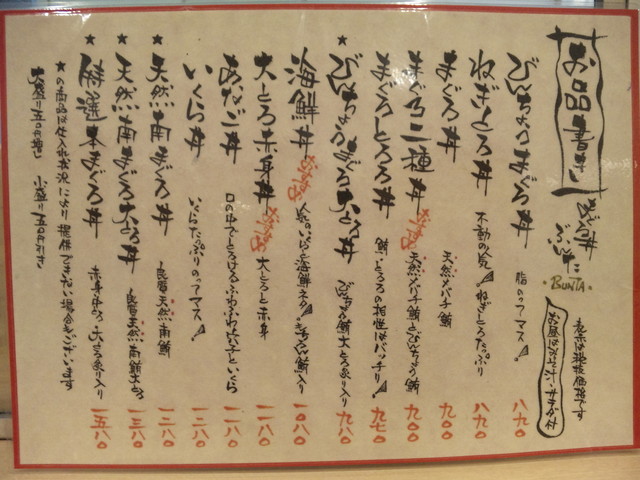 お品書き
まぐろ丼
ぶんた
・BUNTA・
表示は税抜価格です
お昼はみそ汁、サラダ付
びんちょうまぐろ丼 脂のってマス。 八九〇
ねぎとろ丼 不動の人気。ねぎとろたっぷり 八九〇
まぐろ丼 天然メバチ鮪 九〇〇
まぐろ二種丼 おすすめ 天然メバチ鮪とびんちょう鮪 九〇〇
まぐろとろろ丼 鮪とろろの相性はバッチリ 九七〇
★びんちょうまぐろ大とろ丼 びんちょう鮪大とろ炙り入り 九八〇
海鮮丼 おすすめ 人気のいくらと海鮮ネタ 鮪入り 一〇八〇
大とろ赤身丼 おすすめ 大とろと赤身 一一八〇
あなご丼 口の中でとろけるふわふわ いくら 一一八〇
いくら丼 いくらたっぷりのってマス 一二八〇
★天然南まぐろ丼 良質天然南鮪 一二八〇
★天然南まぐろ大とろ丼 良質天然南鮪大とろ 一三八〇
★特選本まぐろ丼 赤身中とろ、大とろ炙り入り 一五八〇
★の商品は仕入れ状況により提供できない場合がございます
大盛り五〇円増し 小盛り五〇円引き